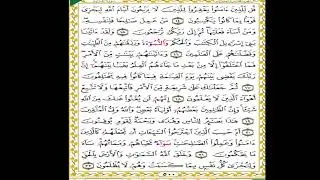 قُل لِّلَّذِينَ ءَامَنُوا۟ يَغْفِرُوا۟ لِلَّذِينَ لَا يَرْجُونَ أَيَّامَ ٱللَّهِ لِيَجْزِىَ
قَوْمًۢا بِمَا كَانُوا۟ يَكْسِبُونَ ١٤ مَنْ عَمِلَ صَٰلِحًا فَلِنَفْسِهِۦ
وَمَنْ أَسَآءَ فَعَلَيْهَا ثُمَّ إِلَىٰ رَبِّكُمْ تُرْجَعُونَ ١٥ وَلَقَدْ ءَاتَيْنَا
بَنِىٓ إِسْرَٰٓءِيلَ ٱلْكِتَٰبَ وَٱلْحُكْمَ وَٱلنُّبُوَّةَ وَرَزَقْنَٰهُم مِّنَ ٱلطَّيِّبَٰتِ
وَفَضَّلْنَٰهُمْ عَلَى ٱلْعَٰلَمِينَ ١٦ وَءَاتَيْنَٰهُم بَيِّنَٰتٍ مِّنَ ٱلْأَمْرِ
فَمَا ٱخْتَلَفُوٓا۟ إِلَّا مِنۢ بَعْدِ مَا جَآءَهُمُ ٱلْعِلْمُ بَغْيًۢا بَيْنَهُمْ إِنَّ رَبَّكَ
يَقْضِى بَيْنَهُمْ يَوْمَ ٱلْقِيَٰمَةِ فِيمَا كَانُوا۟ فِيهِ يَخْتَلِفُونَ
١٧ ثُمَّ جَعَلْنَٰكَ عَلَىٰ شَرِيعَةٍ مِّنَ ٱلْأَمْرِ فَٱتَّبِعْهَا وَلَا تَتَّبِعْ
أَهْوَآءَ ٱلَّذِينَ لَا يَعْلَمُونَ ١٨ إِنَّهُمْ لَن يُغْنُوا۟ عَنكَ مِنَ ٱللَّهِ
شَيْـًٔا وَإِنَّ ٱلظَّٰلِمِينَ بَعْضُهُمْ أَوْلِيَآءُ بَعْضٍ وَٱللَّهُ وَلِىُّ ٱلْمُتَّقِينَ
١٩ هَٰذَا بَصَٰٓئِرُ لِلنَّاسِ وَهُدًى وَرَحْمَةٌ لِّقَوْمٍ يُوقِنُونَ
٢٠ أَمْ حَسِبَ ٱلَّذِينَ ٱجْتَرَحُوا۟ ٱلسَّيِّـَٔاتِ أَن نَّجْعَلَهُمْ كَٱلَّذِينَ
ءَامَنُوا۟ وَعَمِلُوا۟ ٱلصَّٰلِحَٰتِ سَوَآءً مَّحْيَاهُمْ وَمَمَاتُهُمْ سَآءَ
مَا يَحْكُمُونَ ٢١ وَخَلَقَ ٱللَّهُ ٱلسَّمَٰوَٰتِ وَٱلْأَرْضَ بِٱلْحَقِّ
وَلِتُجْزَىٰ كُلُّ نَفْسٍۭ بِمَا كَسَبَتْ وَهُمْ لَا يُظْلَمُونَ ٢٢
٥٠٠